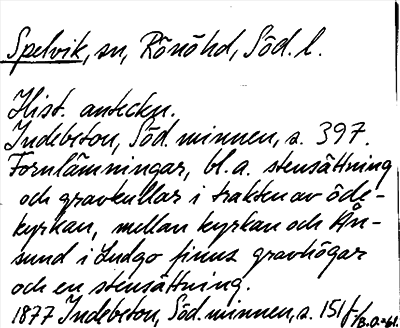 Spelvik, sn, Rönöhd, Söd. l.
Hist. anteckn.
Indebetou, Söd. minnen, s. 397.
Fornlämningar, bl. a. stensättning
och gravkullar i trakten av öde-
kyrkan, mellan kyrkan och Ån-
sund i Ludgo finns gravhögar
och en stensättning.
1877 Indebetou, Söd. minnen, s. 151 f. /B.A.-61